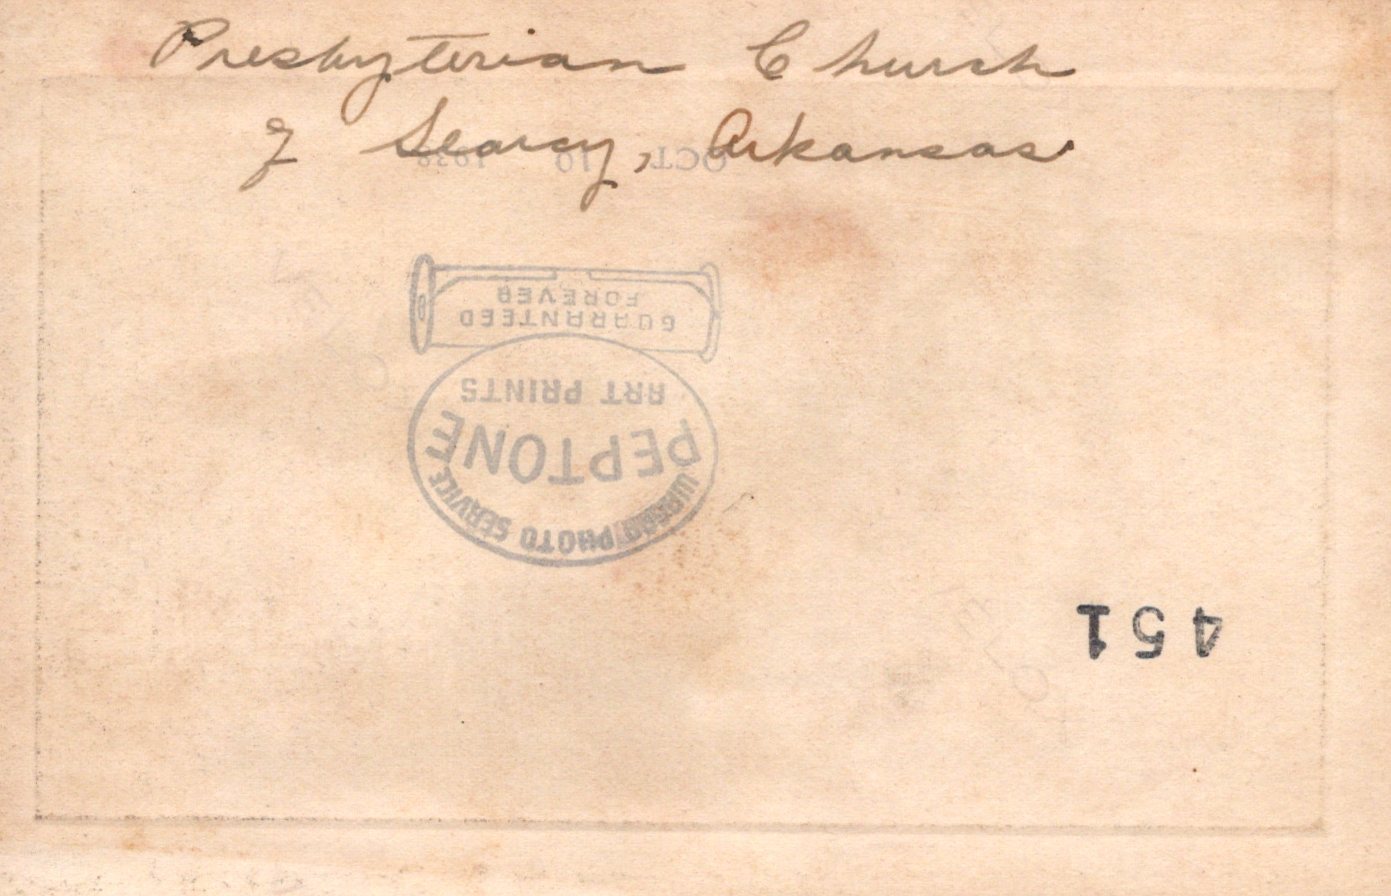 Presbyterian Church
of Searcy, Arkansas
OCT 10 1938
PHOTO SERVICE
PEPTONE
ART PRINTS
GUARANTEED
FOREVER
451